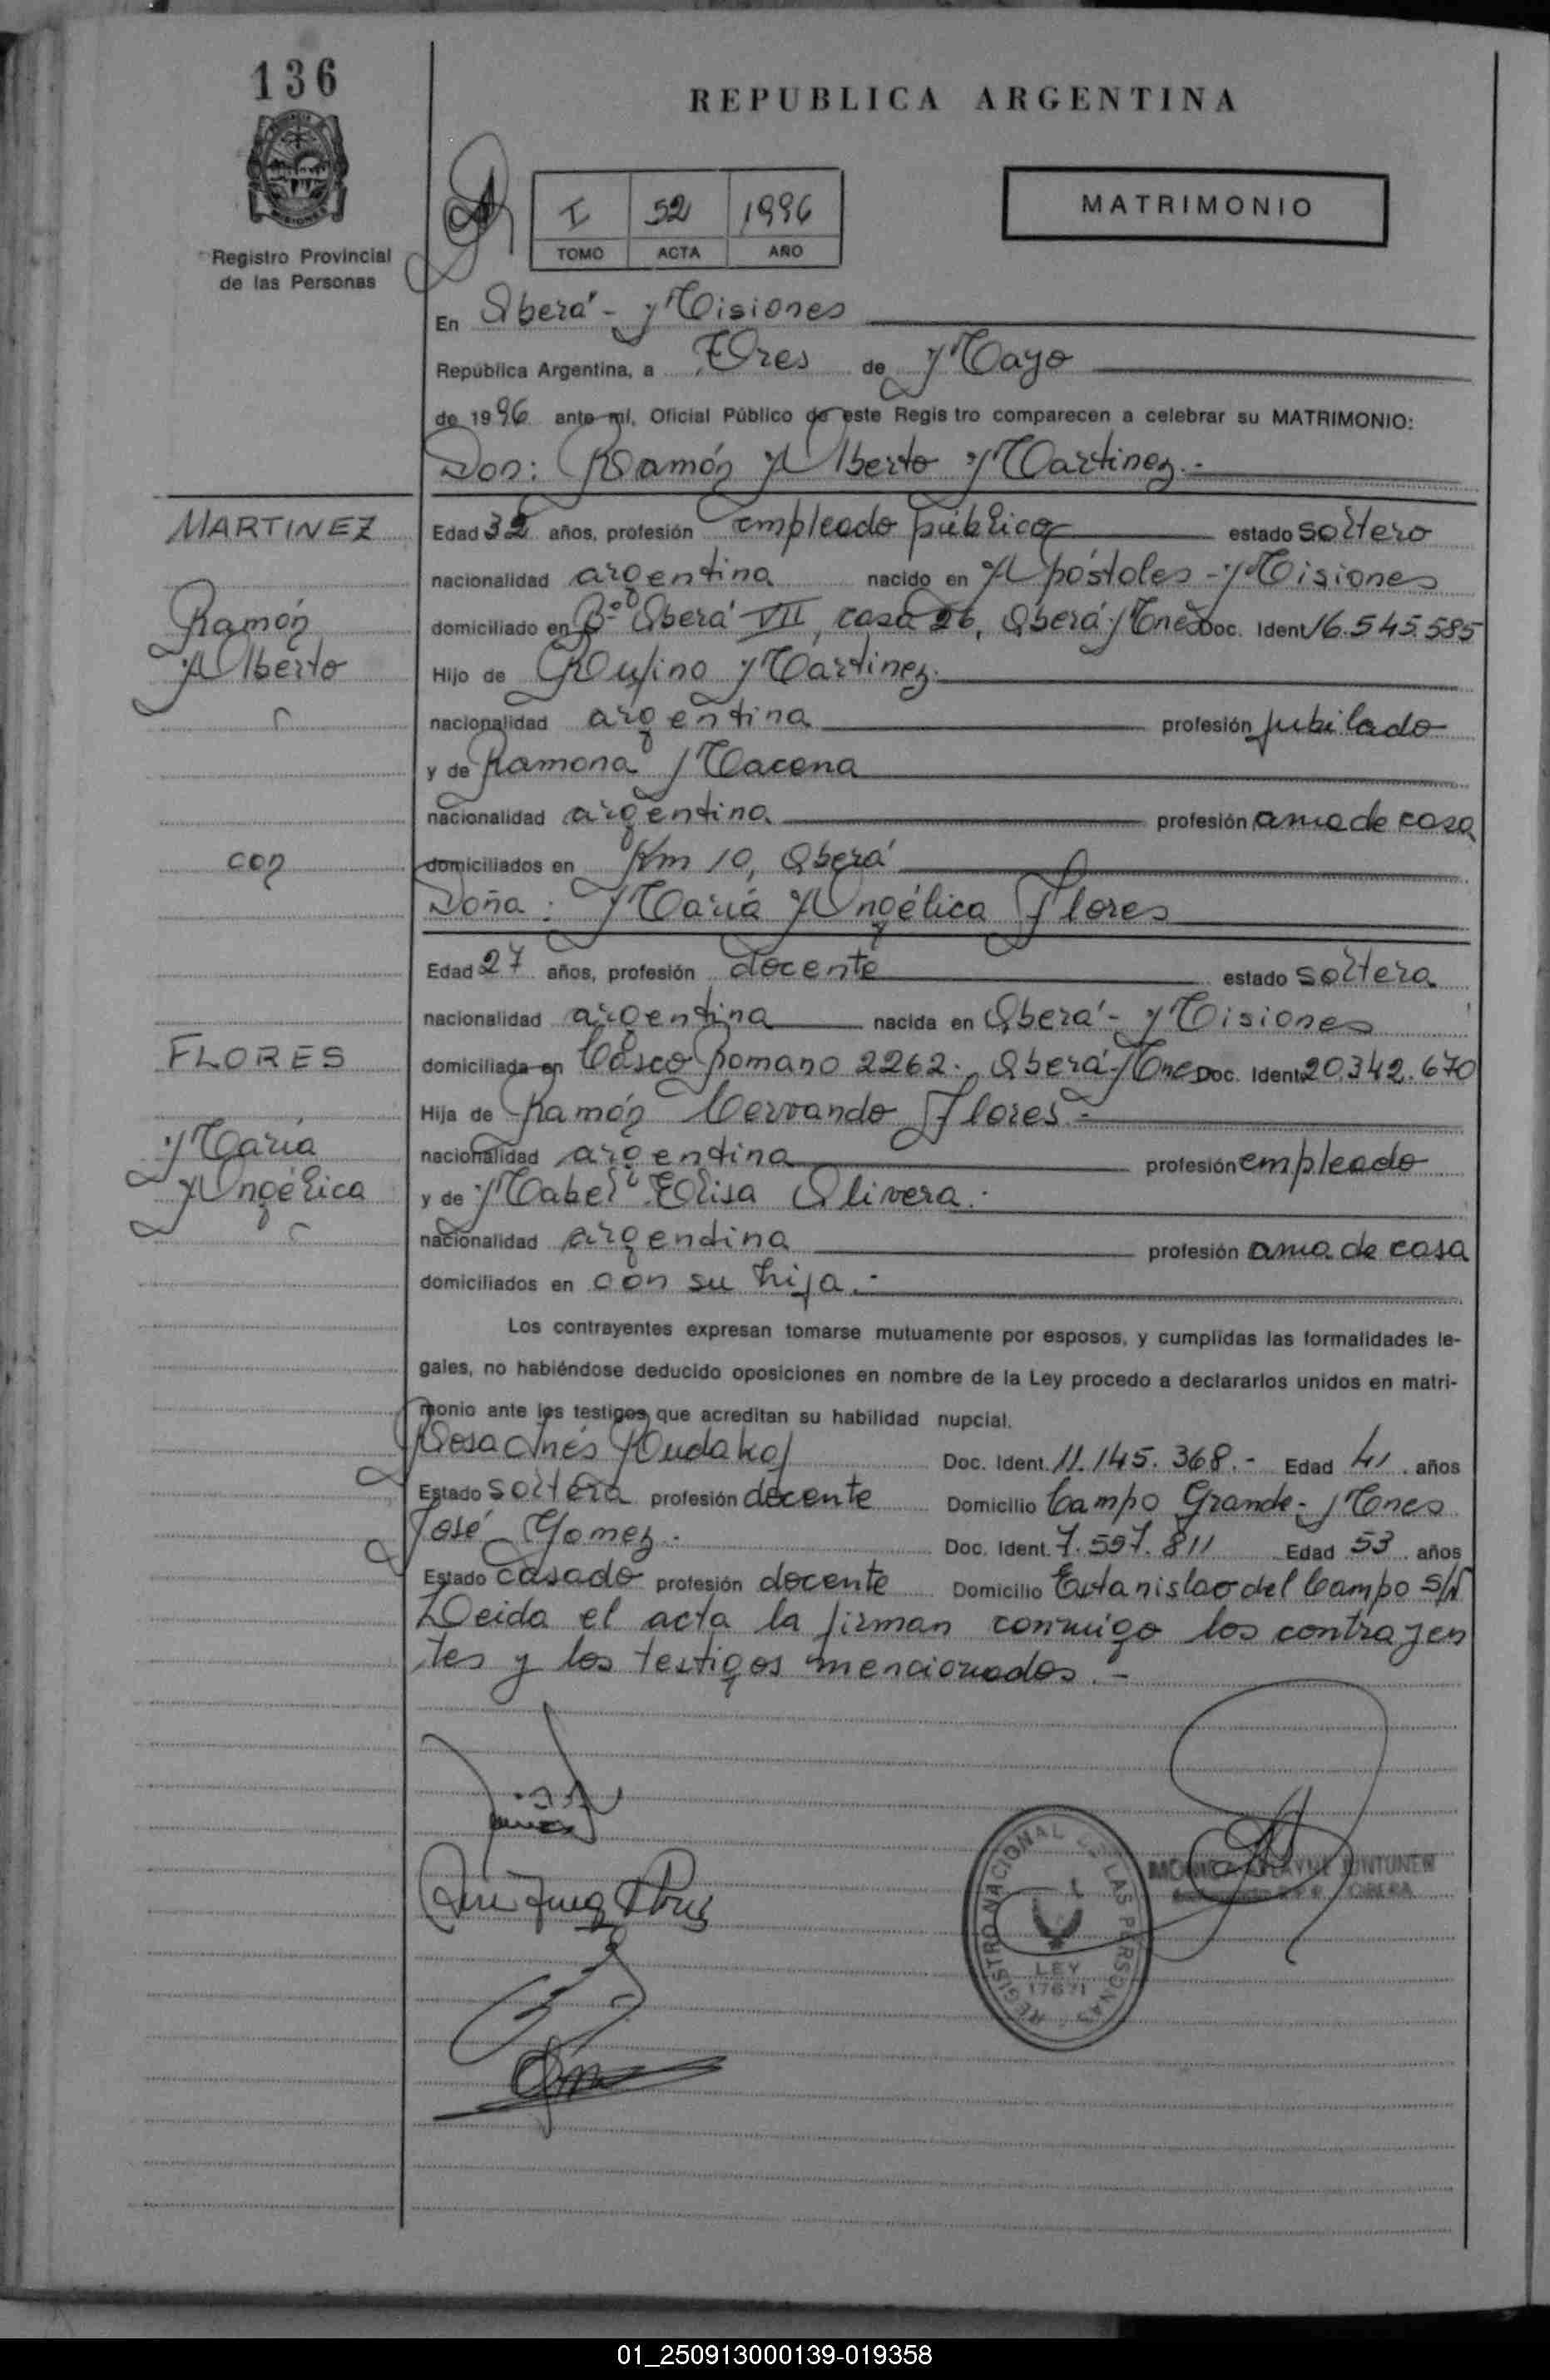 136
REPUBLICA ARGENTINA
MISIONES
Registro Provincial
de las Personas
I 52 1996
TOMO ACTA AÑO
MATRIMONIO
En Oberá - Misiones
República Argentina, a Tres de Mayo
de 1996 ante mí, Oficial Público de este Regis tro comparecen a celebrar su MATRIMONIO:
Don: Ramón Alberto Martinez.-
MARTINEZ
Ramón
Alberto
Edad 32 años, profesión empleado público estado soltero
nacionalidad argentina nacido en Apóstoles - Misiones
domiciliado en Bº Oberá VII, casa 26, Oberá-Mnes Doc. Ident 16.545.585
Hijo de Rufino Martinez.
nacionalidad argentina profesión jubilado
y de Ramona Macena
nacionalidad argentina profesión ama de casa
con
domiciliados en Km 10, Oberá
Doña: María Angélica Flores
Edad 27 años, profesión docente estado soltera
nacionalidad argentina nacida en Oberá - Misiones
FLORES
María
Angélica
domiciliada en Casco Romano 2262. Oberá-Mnes Doc. Ident. 20.342.670
Hija de Ramón Cervando Flores.-
nacionalidad argentina profesión empleado
y de Mabel Elisa Olivera.
nacionalidad argentina profesión ama de casa
domiciliados en con su hija.-
Los contrayentes expresan tomarse mutuamente por esposos, y cumplidas las formalidades le-
gales, no habiéndose deducido oposiciones en nombre de la Ley procedo a declararlos unidos en matri-
monio ante los testigos que acreditan su habilidad nupcial.
Rosa Inés Rudakof Doc. Ident. 11.145.368.- Edad 41 años
Estado soltera profesión docente Domicilio Campo Grande-Mnes
José Gomez. Doc. Ident. 7.597.811 Edad 53 años
Estado casado profesión docente Domicilio Estanislao del Campo S/N
Leida el acta la firman conmigo los contrayen
tes y los testigos mencionados.-
REGISTRO NACIONAL DE LAS PERSONAS
LEY
17671
JUNTUNEN
OBERA
01_250913000139-019358